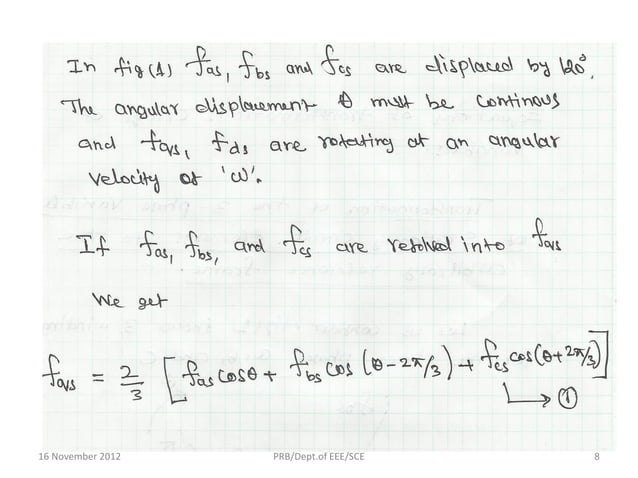 In fig(1) fas, fbs and fcs are displaced by 120°.
The angular displacement θ must be continous
and fqs, fds are rotating at an angular
velocity of 'ω'.
If fas, fbs, and fcs are resolved into fqs
We get
fqs = 2/3 [fas cosθ + fbs cos (θ-2π/3) + fcs cos(θ+2π/3)]
→ ①
16 November 2012 PRB/Dept.of EEE/SCE 8